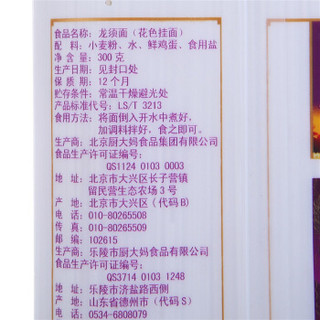 食品名称：龙须面（花色挂面）
配　料：小麦粉、水、鲜鸡蛋、食用盐
净 含 量：300克
生产日期：见封口处
保 质 期：12个月
贮存条件：常温干燥避光处
产品标准代号：LS/T 3213
食用方法：将面倒入开水中煮好，
加调料拌好，食之即可。
生产商：北京厨大妈食品集团有限公司
食品生产许可证编号：
QS1124 0103 0003
地　址：北京市大兴区长子营镇
留民营生态农场3号
产　地：北京市大兴区（代码B）
电　话：010-80265508
传　真：010-80265509
邮　编：102615
生产商：乐陵市厨大妈食品有限公司
食品生产许可证编号：
QS3714 0103 1248
地　址：乐陵市济盐路西侧
产　地：山东省德州市（代码S）
电　话：0534-6808079